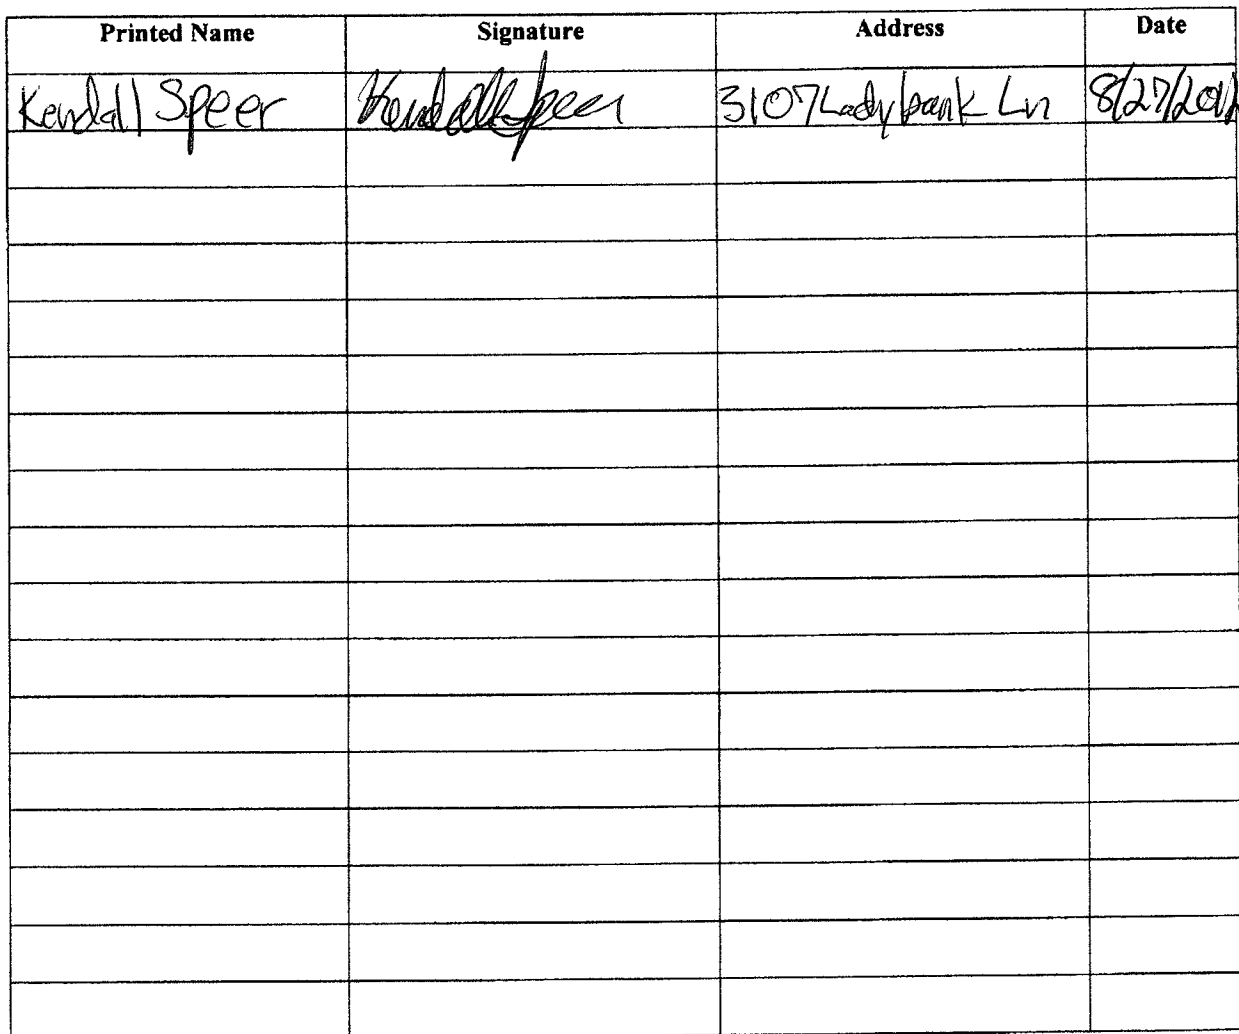 Printed Name Signature Address Date
Kendall Speer Kendall Speer 3107 Ladybank Ln